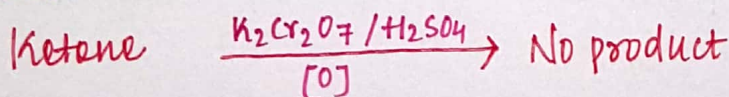 Ketone K2Cr2O7/H2SO4 No product
[O]